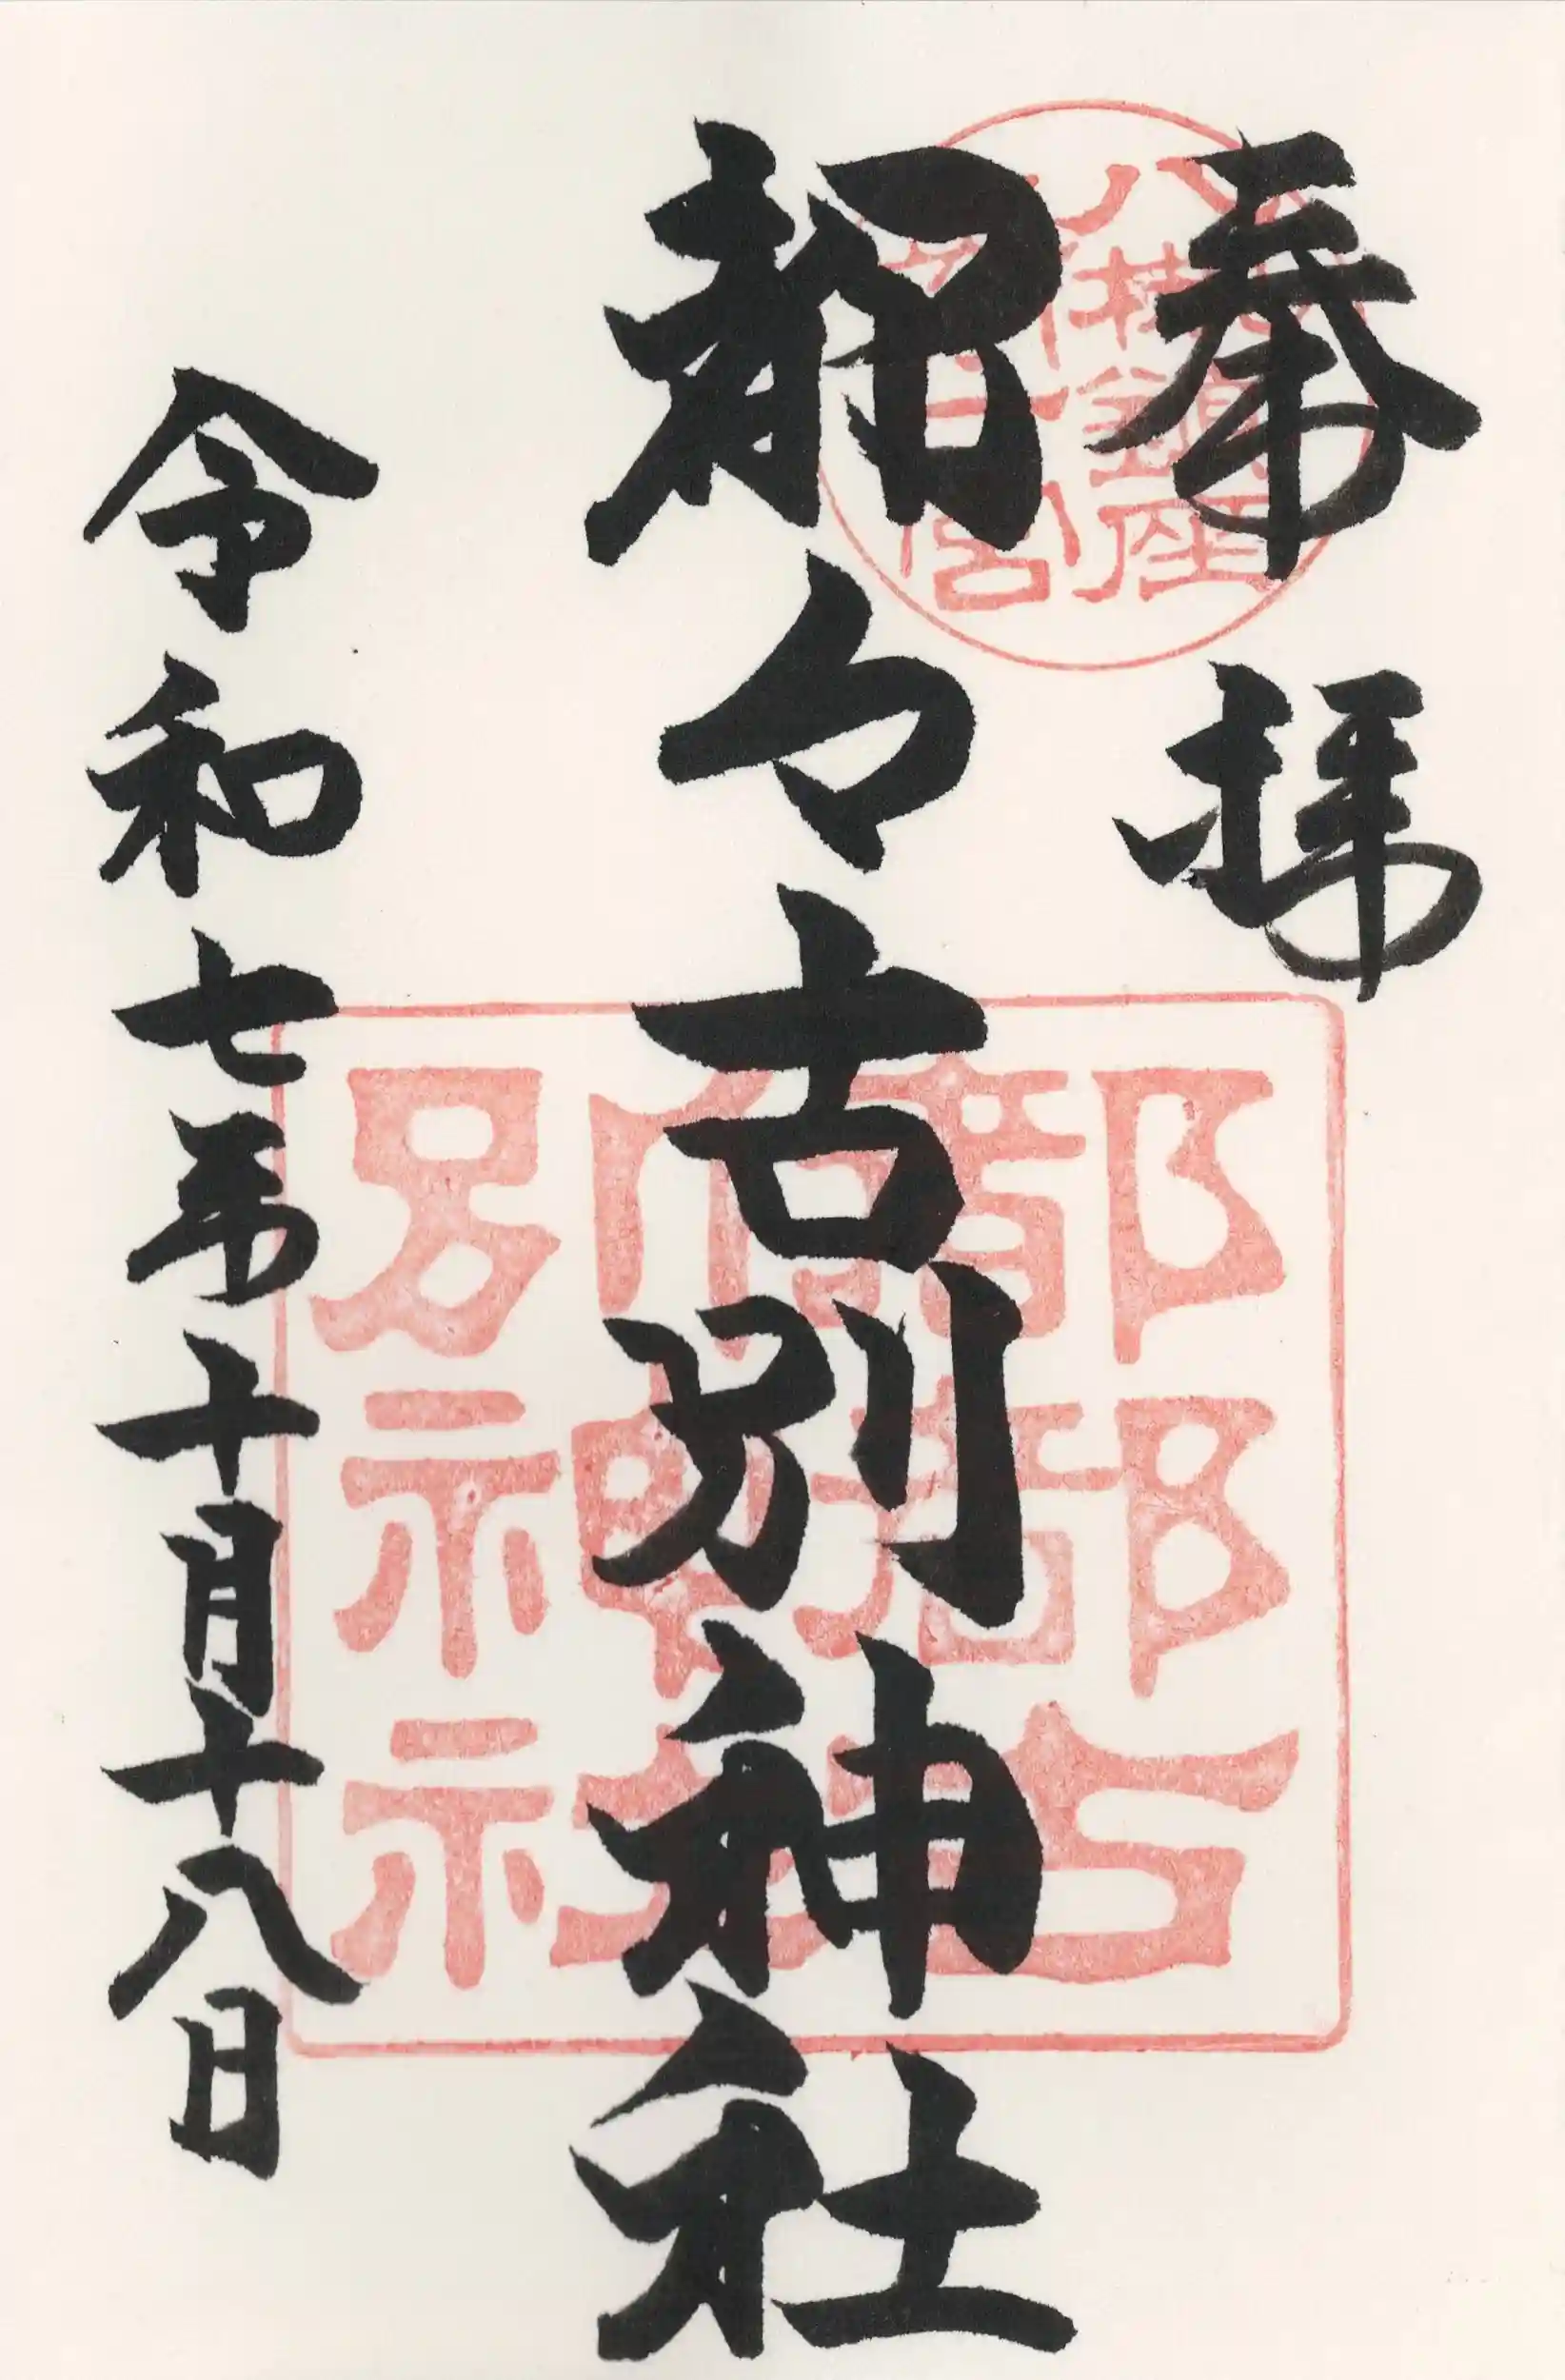 奉拝
八槻鎮座
奥州一宮
都々古別神社
都都古
別神社
令和七年十月十八日